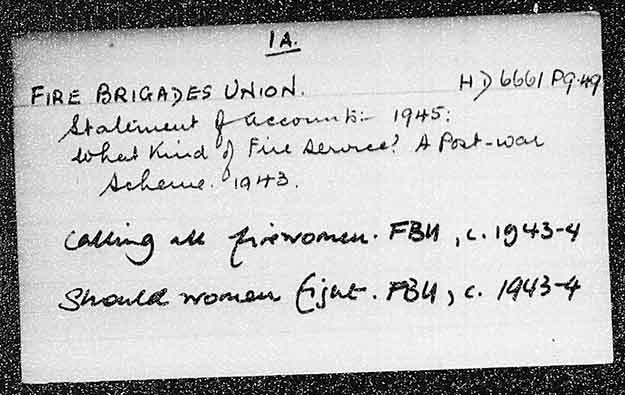 1A.
FIRE BRIGADES UNION. HD6661 P9.49
Statement of accounts:- 1945:
What Kind of Fire Service? A Post-war
Scheme. 1943.
Calling all firewomen. FBU, c. 1943-4
Should women fight. FBU, c. 1943-4